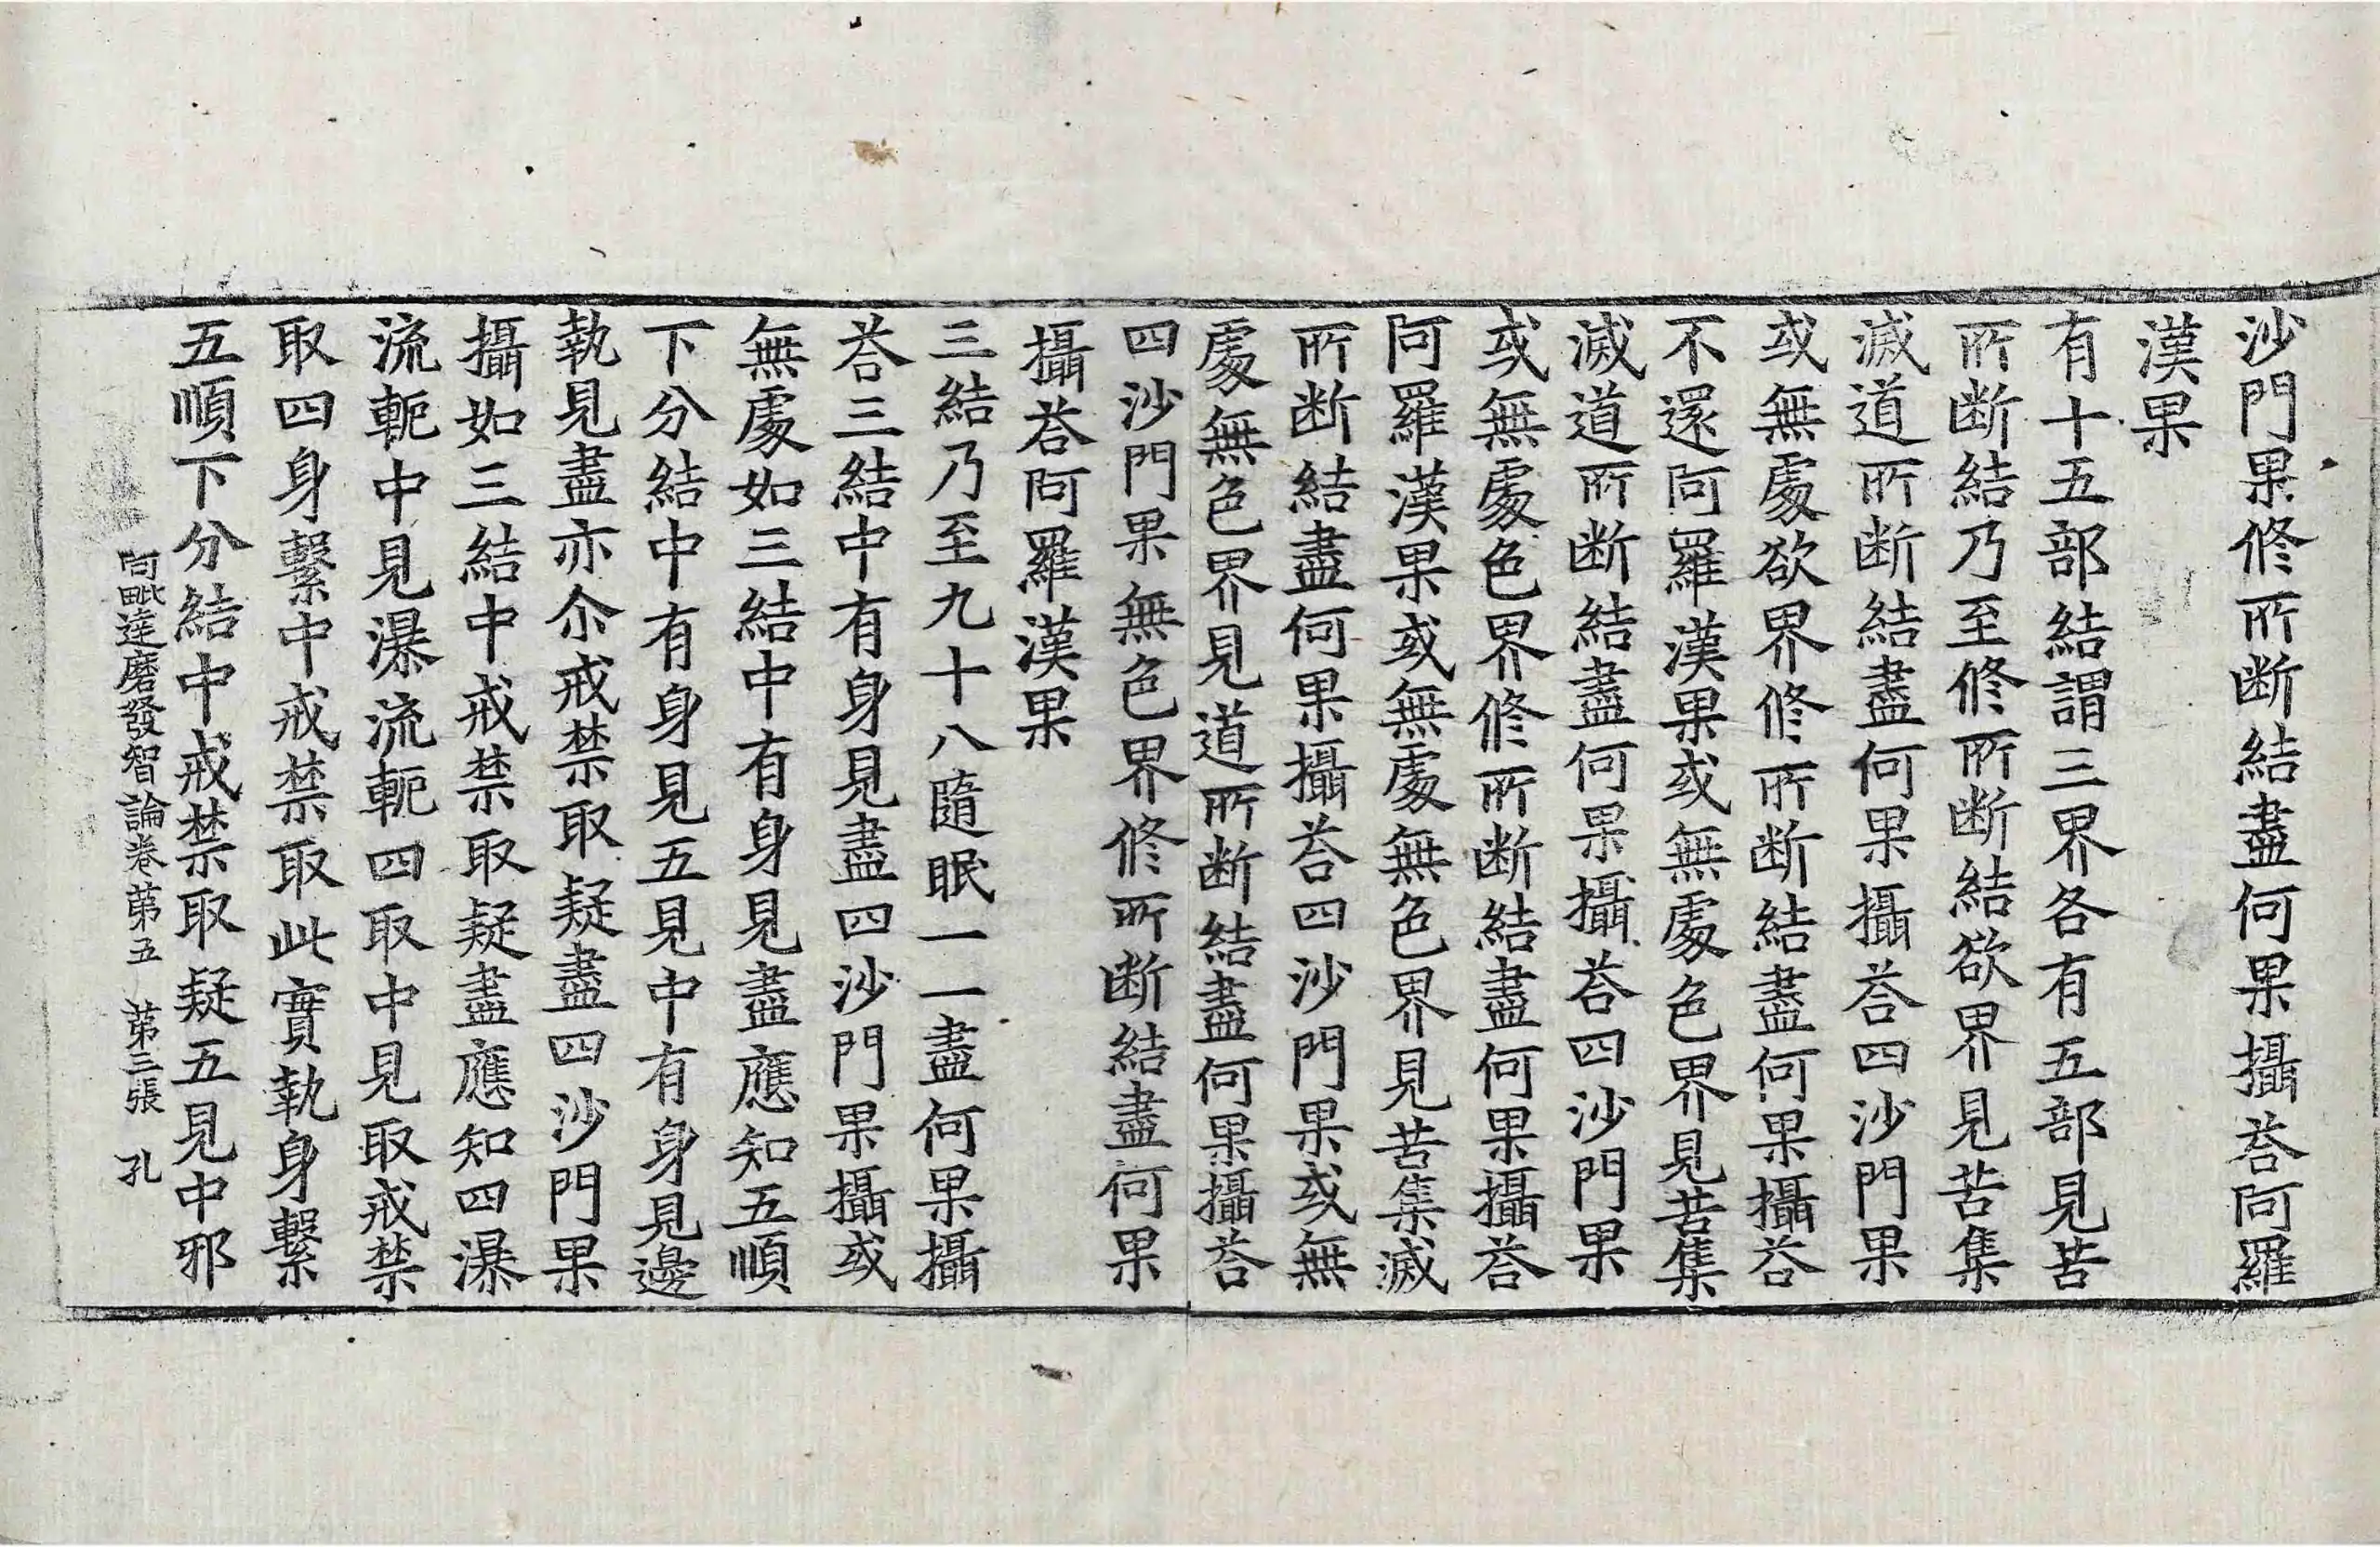 沙門果修所断結盡何果攝荅阿羅
漢果
有十五部結謂三界各有五部見苦
所断結乃至修所断結欲界見苦集
滅道所断結盡何果攝荅四沙門果
或無處欲界修所断結盡何果攝荅
不還阿羅漢果或無處色界見苦集
滅道所断結盡何果攝荅四沙門果
或無處色界修所断結盡何果攝荅
阿羅漢果或無處無色界見苦集滅
所断結盡何果攝荅四沙門果或無
處無色界見道所断結盡何果攝荅
四沙門果無色界修所断結盡何果
攝荅阿羅漢果
三結乃至九十八隨眠一一盡何果攝
荅三結中有身見盡四沙門果攝或
無處如三結中有身見盡應知五順
下分結中有身見五見中有身見邊
執見盡亦尒戒禁取疑盡四沙門果
攝如三結中戒禁取疑盡應知四瀑
流軛中見瀑流軛四取中見取戒禁
取四身繫中戒禁取此實執身繫
五順下分結中戒禁取疑五見中邪
阿毗達磨發智論卷苐五 苐三張 孔